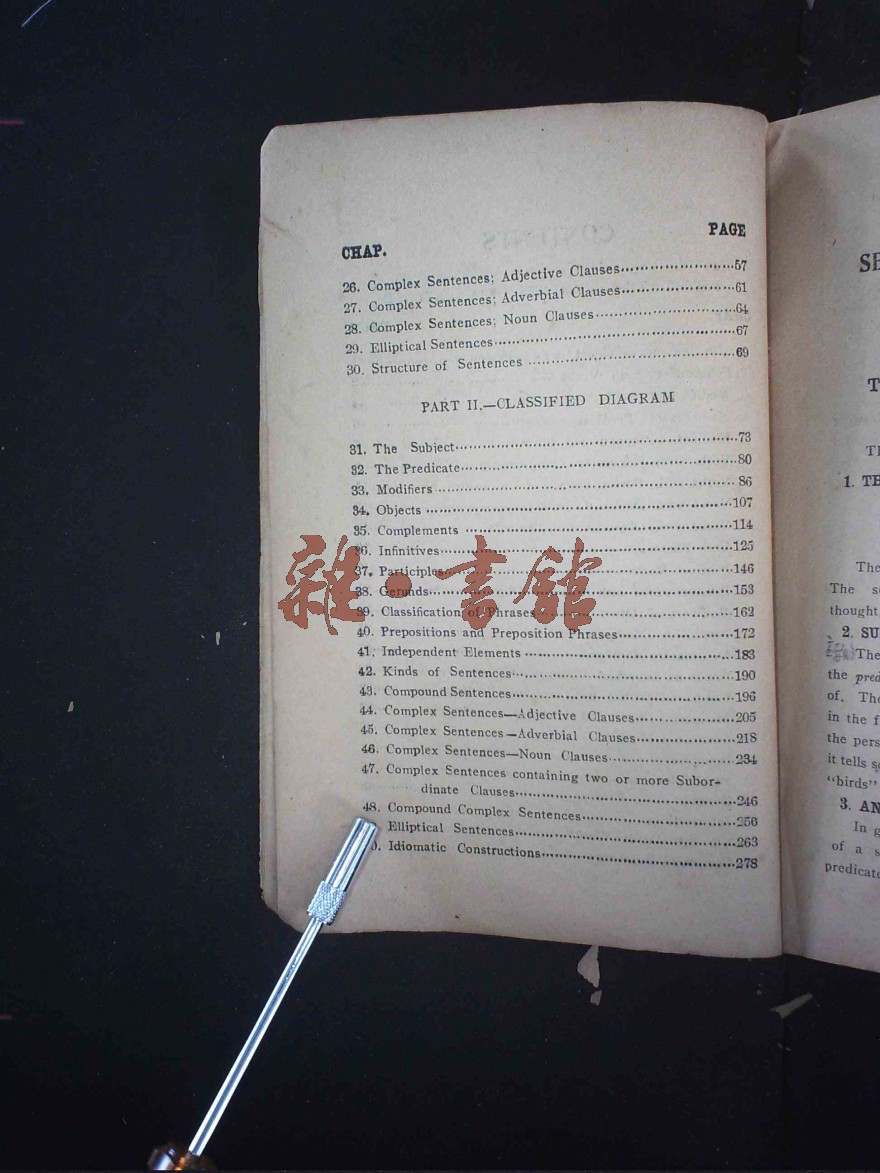 CHAP.
PAGE
26. Complex Sentences; Adjective Clauses........................57
27. Complex Sentences; Adverbial Clauses........................61
28. Complex Sentences; Noun Clauses........................64
29. Elliptical Sentences........................67
30. Structure of Sentences ........................69
PART II.—CLASSIFIED DIAGRAM
31. The Subject........................73
32. The Predicate........................80
33. Modifiers ........................86
34. Objects ........................107
35. Complements ........................114
36. Infinitives........................125
37. Participles........................146
38. Gerunds........................153
39. Classification of Phrases........................162
40. Prepositions and Preposition Phrases........................172
41. Independent Elements ........................183
42. Kinds of Sentences........................190
43. Compound Sentences........................196
44. Complex Sentences—Adjective Clauses........................205
45. Complex Sentences—Adverbial Clauses........................218
46. Complex Sentences—Noun Clauses........................234
47. Complex Sentences containing two or more Subor-
dinate Clauses........................246
48. Compound Complex Sentences........................256
Elliptical Sentences........................263
0. Idiomatic Constructions........................278
雜·書館
1. TH
The
The
thought
2. SU
The
the pred
of. The
in the f
the pers
it tells
"birds"
3. AN
In g
of a s
predicate